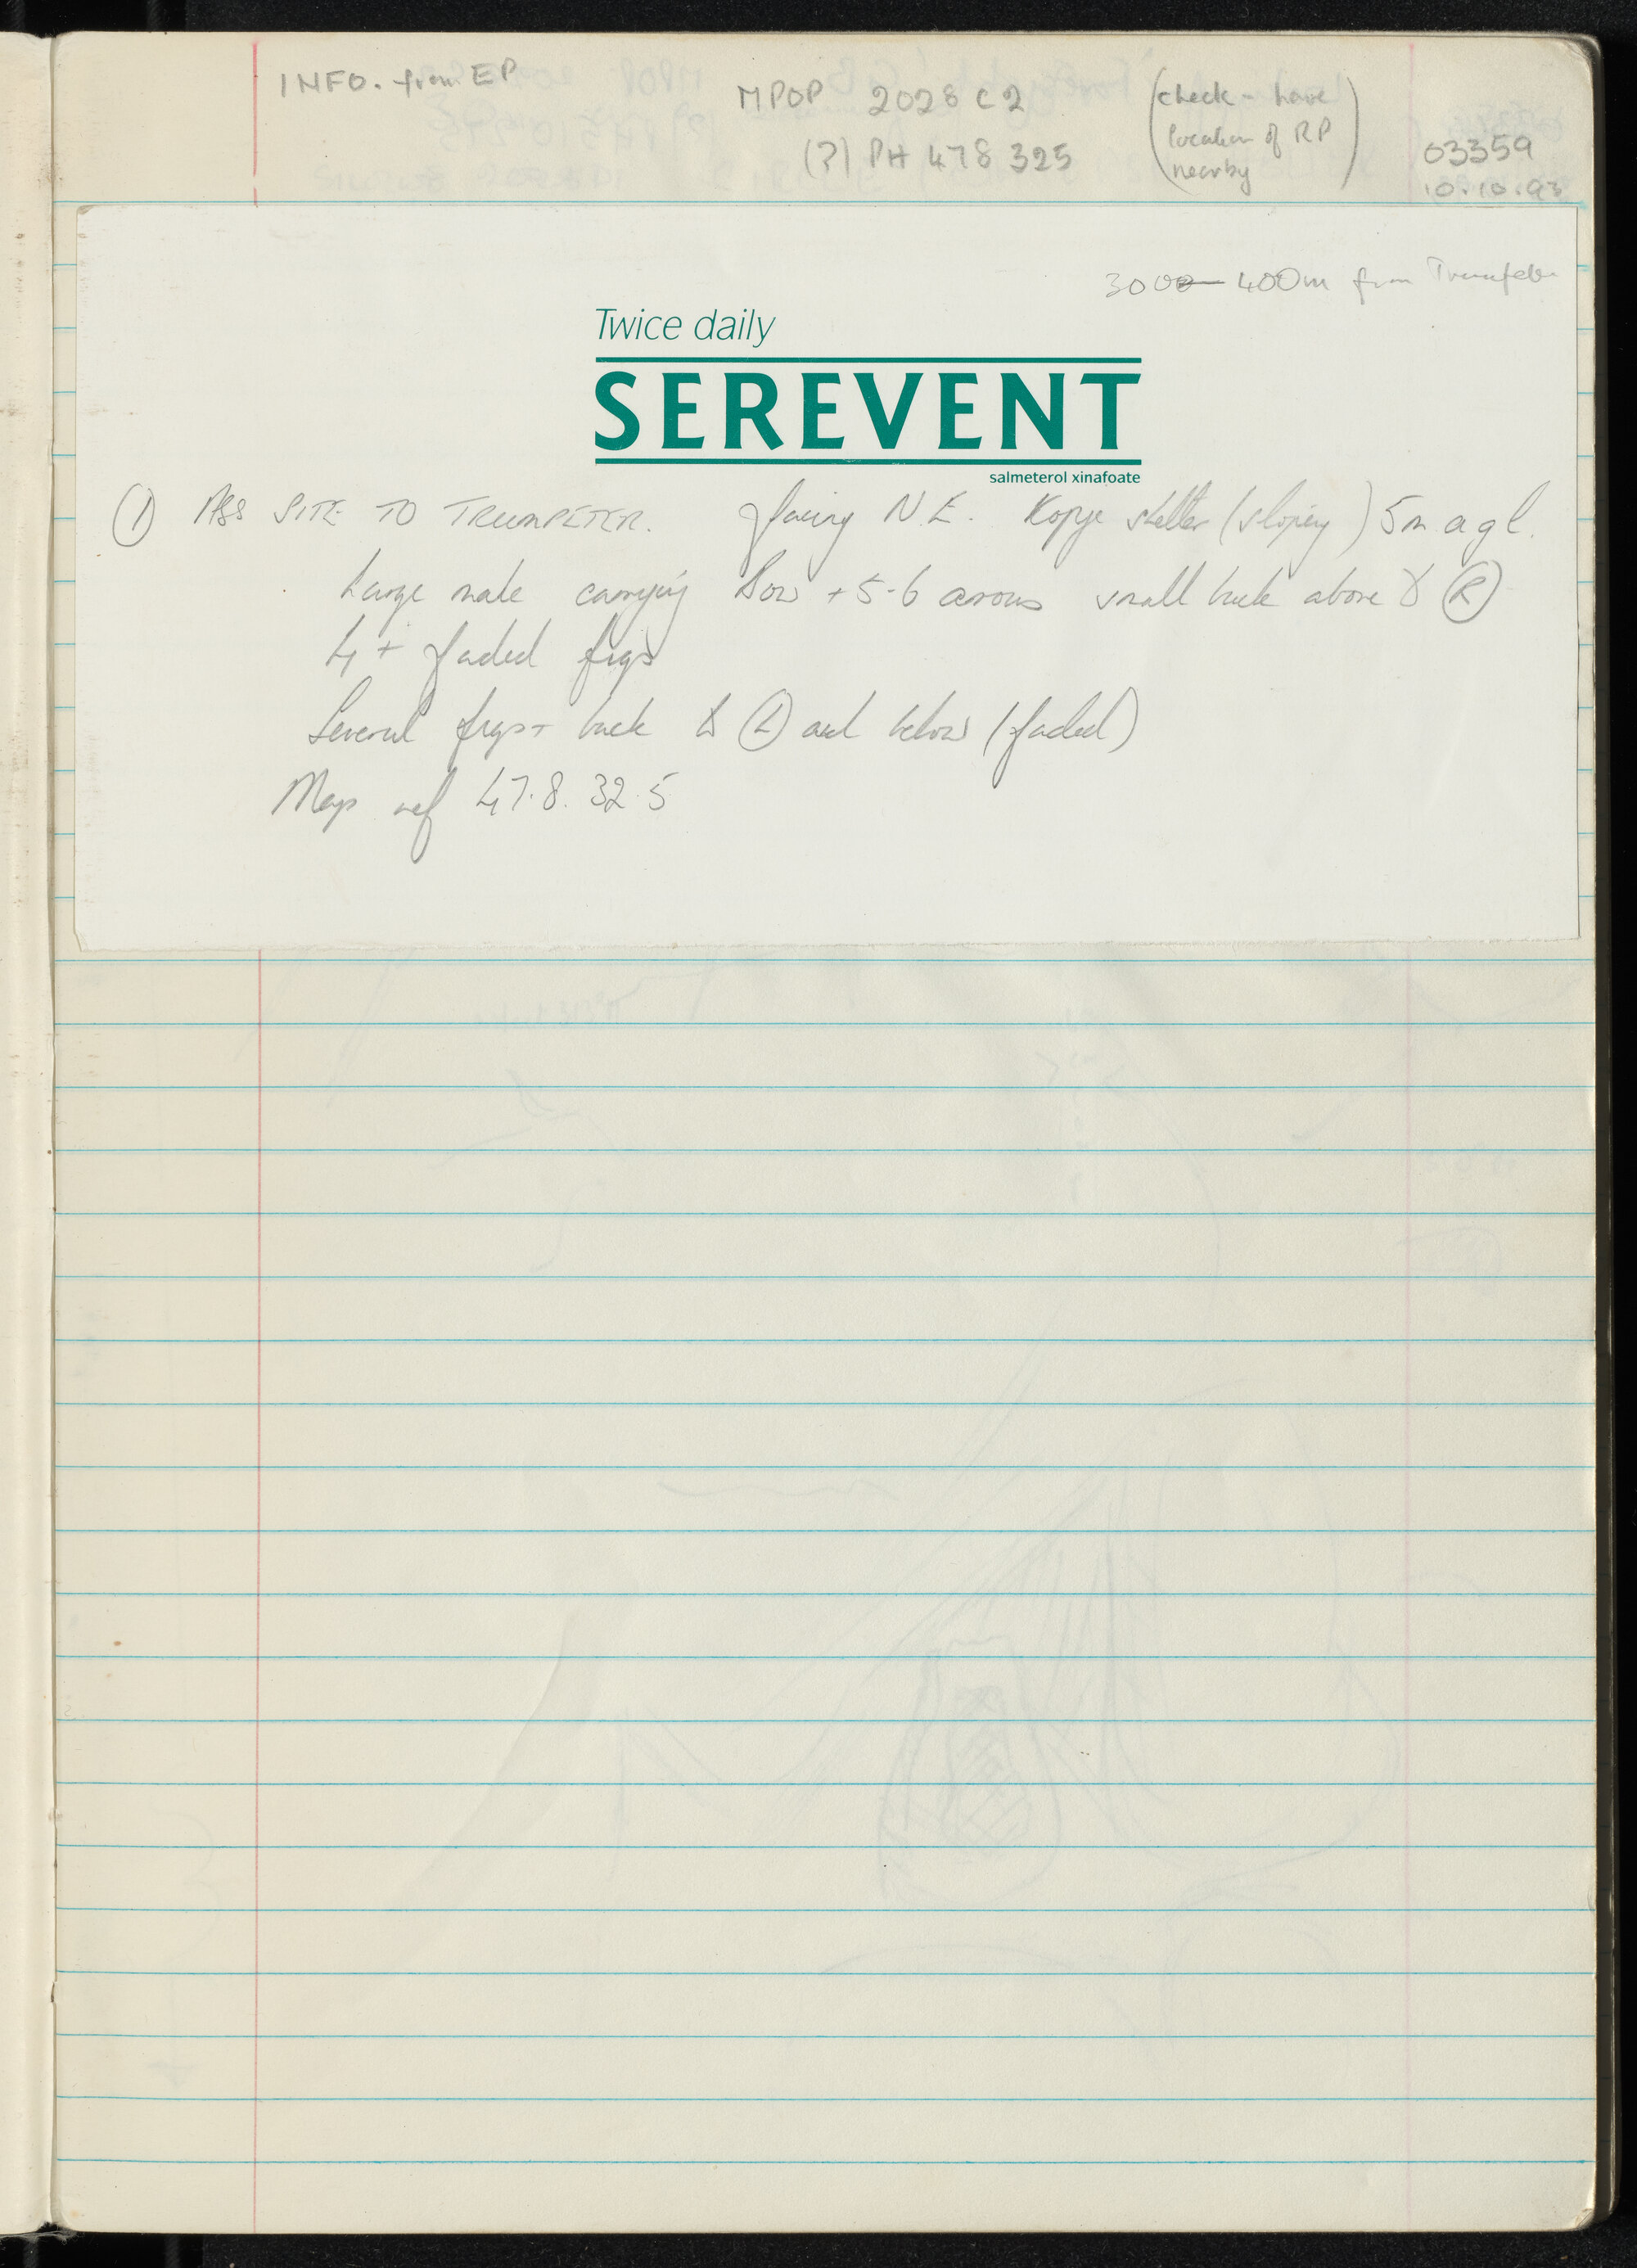 INFO. from EP
MPOP 2028 C2
(?) PH 478 325
(check - have
location of RP
nearby)
03359
10.10.93
300 - 400m from Trumpeter
Twice daily
SEREVENT
salmeterol xinafoate
① ASS SITE TO TRUMPETER. facing N.E. Kopje shelter (sloping) 5m agl.
Large male carrying bow + 5-6 arrows small buck above &
4+ faded figs
Several figs + buck to Ⓛ and below (faded)
Map ref 47.8. 32.5